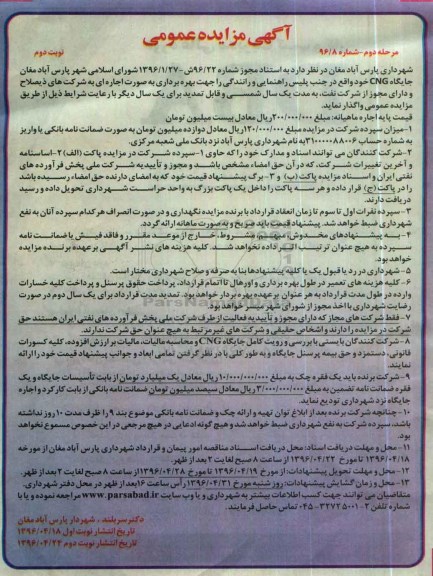 آگهی مزایده عمومی
مرحله دوم -شماره ۹۶/۸
نوبت دوم
شهرداری پارس آباد مغان در نظر دارد به استناد مجوز شماره ۹۶/۲۲ش-۱۳۹۶/۱/۲۷شورای اسلامی شهر پارس آباد مغان
جایگاه CNG خود واقع در جنب پلیس راهنمایی و رانندگی را جهت بهره برداری به صورت اجاره ای به شرکت های ذیصلاح
و دارای مجوز از شرکت نفت، به مدت یک سال شمسی و قابل تمدید برای یک سال دیگر با رعایت شرایط ذیل از طریق
مزایده عمومی واگذار نماید.
قیمت پایه اجاره ماهیانه: مبلغ ۲۰۰/۰۰۰/۰۰۰ریال معادل بیست میلیون تومان
۱-میزان سپرده شرکت در مزایده مبلغ ۱۲۰/۰۰۰/۰۰۰ریال معادل دوازده میلیون تومان به صورت ضمانت نامه بانکی یا واریز
به شماره حساب ۳۱۰۰۰۰۰۸۸۰۰۶به نام شهرداری پارس آباد نزد بانک ملی شعبه مرکزی.
۲-شرکت کنندگان می توانند اسناد و مدارک خود را که حاوی ۱-سپرده شرکت در مزایده پاکت (الف) ۲-اساسنامه
و آخرین تغییرات شرکت، که در آن حق امضاء مشخص باشد و مجوز و تأییدیه شرکت ملی پخش فرآورده های
نفتی ایران و اسناد مزایده پاکت (ب) و ۳-برگ پیشنهاد قیمت خود که به امضای دارنده حق امضاء رسیده باشد
را در پاکت (ج) قرار داده و هر سه پاکت را داخل یک پاکت بزرگ به واحد حراست شهرداری تحویل داده و رسید
دریافت دارند.
۳-سپرده نفرات اول تا سوم تا زمان انعقاد قرارداد با برنده مزایده نگهداری و در صورت انصراف هر کدام سپرده آنان به نفع
شهرداری ضبط خواهد شد. پیشنهاد قیمت باید صریح و به صورت ماهانه ارائه گردد.
۴-به پیشنهادهای مخدوش، مبهم، مشروط، خارج از موعد مقرر و فاقد فیش یا ضمانت نامه
سپرده به هیچ عنوان ترتیب اثر داده نخواهد شد. کلیه هزینه های نشر آگهی بر عهده برنده مزایده
خواهد بود.
۵-شهرداری در رد یا قبول یک یا کلیه پیشنهادها بنا به صرفه و صلاح شهرداری مختار است.
۶-کلیه هزینه های تعمیر در طول بهره برداری و اورهال تا اتمام قرارداد، پرداخت حقوق پرسنل و پرداخت کلیه خسارات
وارده در طول مدت قرارداد به هر عنوان بر عهده بهره بردار خواهد بود. تمدید مدت قرارداد برای یک سال دوم در صورت
رضایت شهرداری با اخذ مجوز از شورای شهر میسر خواهد بود.
۷-فقط شرکت های مجاز که دارای مجوز و تأییدیه فعالیت از طرف شرکت ملی پخش فرآورده های نفتی ایران هستند حق
شرکت در مزایده را دارند و اشخاص حقیقی و شرکت های غیر مرتبط به هیچ عنوان حق شرکت ندارند.
۸-شرکت کنندگان بایستی با بررسی و رویت کامل جایگاه CNG و محاسبه مالیات، مالیات بر ارزش افزوده، کلیه کسورات
قانونی، دستمزد و حق بیمه پرسنل جایگاه و به طور کلی با در نظر گرفتن تمامی ابعاد و جوانب پیشنهاد قیمت خود را ارائه
نمایند.
۹-شرکت برنده باید یک فقره چک به مبلغ ۱۰/۰۰۰/۰۰۰/۰۰۰ ریال معادل یک میلیارد تومان از بابت تأسیسات جایگاه و یک
فقره ضمانت نامه تضمین به مبلغ ۳/۰۰۰/۰۰۰/۰۰۰ریال معادل سیصد میلیون تومان ضمانت نامه بانکی از بابت کارکرد و اجاره
جایگاه نزد شهرداری تودیع نماید.
۱۰-چنانچه شرکت برنده بعد از ابلاغ توان تهیه و ارائه چک و ضمانت نامه بانکی موضوع بند ۹ را ظرف مدت ۱۰ روز نداشته
باشد، سپرده شرکت به نفع شهرداری ضبط خواهد شد و هیچ گونه ادعایی در هیچ مرجعی در این خصوص مسموع نخواهد
بود.
۱۱-محل و مهلت دریافت اسناد: محل دریافت اسناد مناقصه امور پیمان و قرارداد شهرداری پارس آباد مغان از مورخه
۱۳۹۶/۰۴/۱۸ تا مورخ ۱۳۹۶/۰۴/۲۲ از ساعت ۸ صبح لغایت ۲ بعد از ظهر.
۱۲-محل و مهلت تحویل پیشنهادات: از مورخ ۱۳۹۶/۰۴/۱۹ تا مورخ ۱۳۹۶/۰۴/۲۸ از ساعت ۸ صبح لغایت ۲ بعد از ظهر.
۱۳-محل و زمان گشایش پیشنهادات: روز شنبه مورخ ۱۳۹۶/۰۴/۳۱ رأس ساعت ۱۶بعد از ظهر در محل دفتر شهرداری.
متقاضیان می توانند جهت کسب اطلاعات بیشتر به شهرداری و یا وب سایت www.parsabad.ir مراجعه نموده و یا با
شماره تلفن ۲-۳۲۷۲۵۰۰۱-۰۴۵ تماس حاصل فرمایند.
دکتر سربلند - شهردار پارس آباد مغان
تاریخ انتشار نوبت اول ۱۳۹۶/۰۴/۱۸
تاریخ انتشار نوبت دوم ۱۳۹۶/۰۴/۲۲